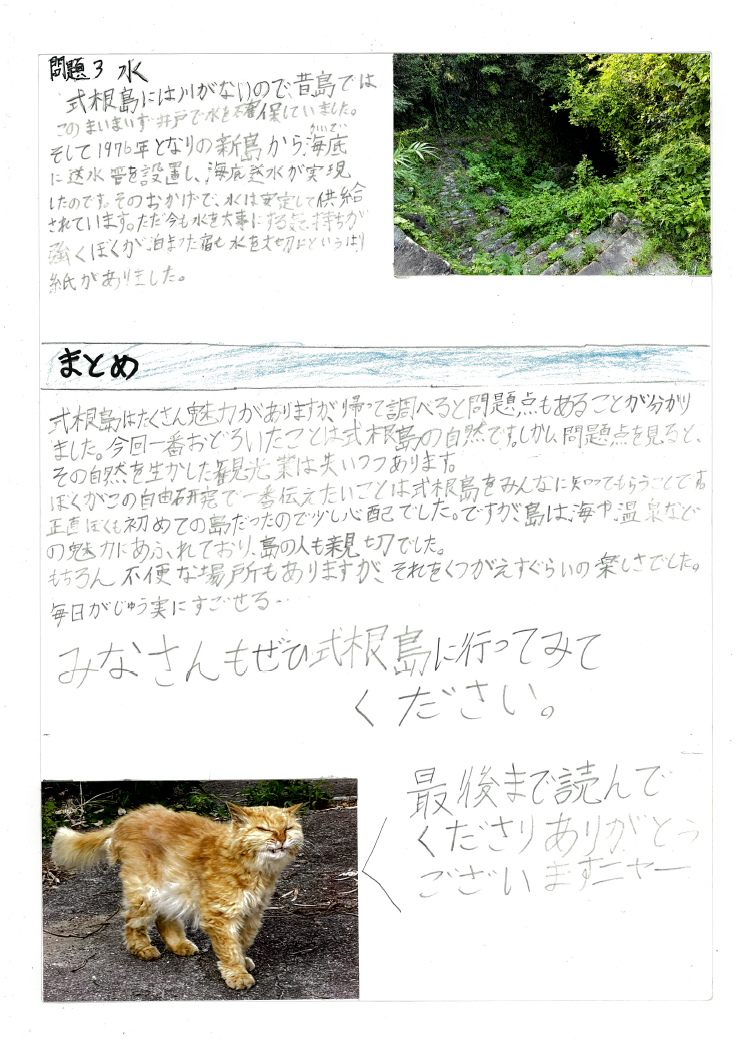 問題3 水
式根島には川がないので、昔島では
このまいまいず井戸で水を確保していました。
そして1976年となりの新島から海底
かいてい
に送水管を設置し、海底送水が実現
したのです。そのおかげで、水は安定して供給
されています。ただ今も水を大事にする気持ちが
強くぼくが泊まった宿も水を大切にというはり
紙がありました。
まとめ
式根島はたくさん魅力がありますが、帰って調べると問題点もあることが分かり
ました。今回一番おどろいたことは式根島の自然です。しかし、問題点を見ると、
その自然を生かした観光業は失いつつあります。
ぼくがこの自由研究で一番伝えたいことは式根島をみんなに知ってもらうことです。
正直ぼくも初めての島だったので少し心配でした。ですが、島は、海や、温泉など
の魅力にあふれており、島の人も親切でした。
もちろん不便な場所もありますが、それをくつがえすぐらいの楽しさでした。
毎日がじゅう実にすごせる…
みなさんもぜひ式根島に行ってみて
ください。
最後まで読んで
くださりありがとう
ございますニャー